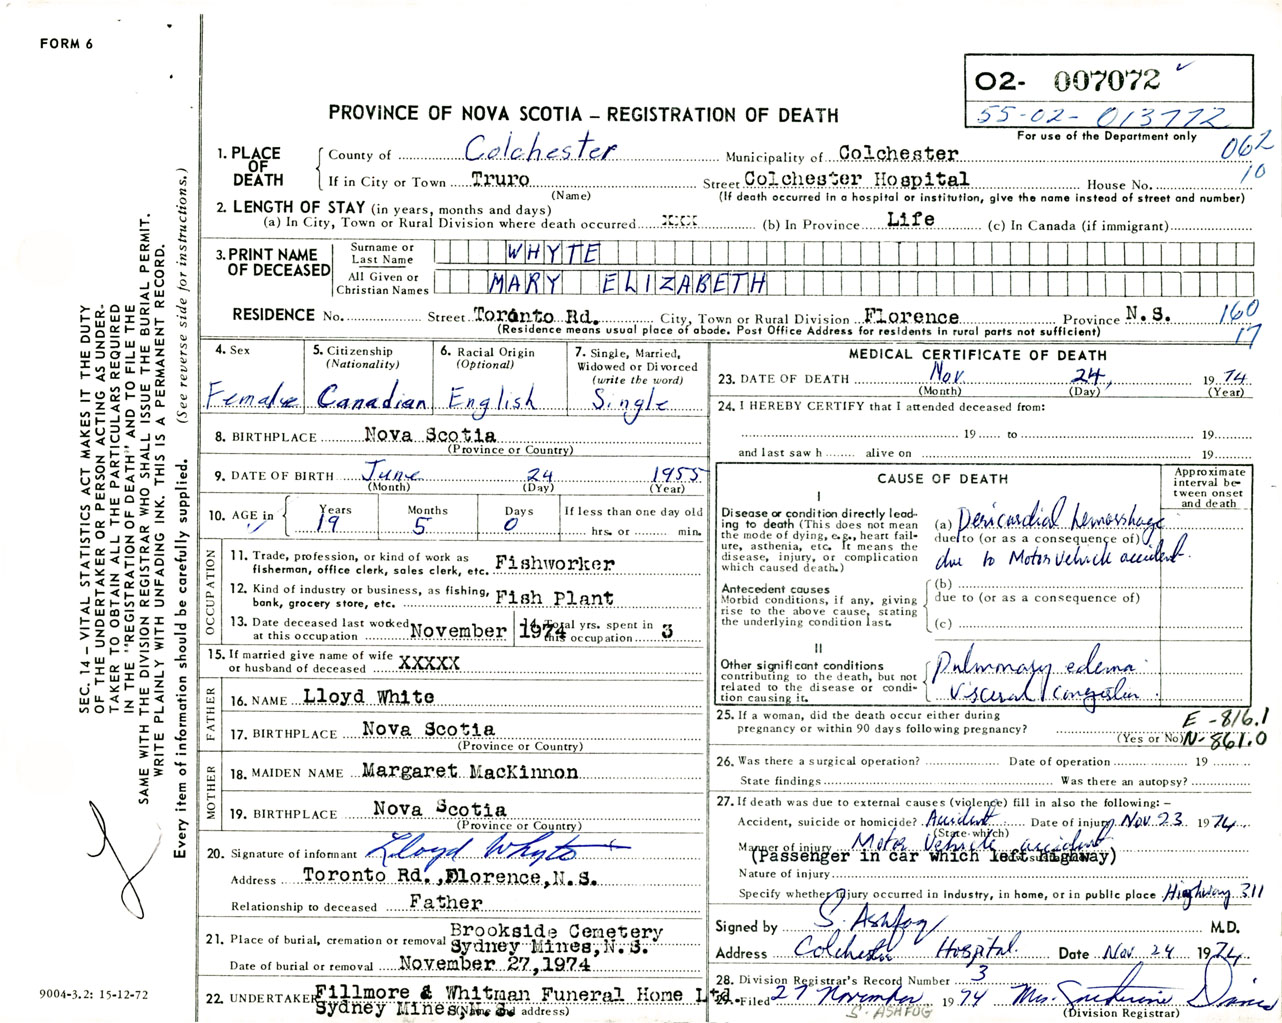 FORM 6
O2- 007072
55-02-013772
For use of the Department only
PROVINCE OF NOVA SCOTIA – REGISTRATION OF DEATH
062
10
1. PLACE OF DEATH
County of Colchester Municipality of Colchester
If in City or Town Truro Street Colchester Hospital House No.
(Name) (If death occurred in a hospital or institution, give the name instead of street and number)
2. LENGTH OF STAY (in years, months and days)
(a) In City, Town or Rural Division where death occurred XXX (b) In Province Life (c) In Canada (if immigrant)
3. PRINT NAME OF DECEASED
Surname or Last Name WHYTE
All Given or Christian Names MARY ELIZABETH
RESIDENCE No. Street Toronto Rd. City, Town or Rural Division Florence Province N.S. 160
(Residence means usual place of abode. Post Office Address for residents in rural parts not sufficient) 17
4. Sex Female
5. Citizenship (Nationality) Canadian
6. Racial Origin (Optional) English
7. Single, Married, Widowed or Divorced (write the word) Single
8. BIRTHPLACE Nova Scotia
(Province or Country)
9. DATE OF BIRTH June 24 1955
(Month) (Day) (Year)
10. AGE in Years 19 Months 5 Days 0 If less than one day old
hrs. or min.
OCCUPATION
11. Trade, profession, or kind of work as fisherman, office clerk, sales clerk, etc. Fishworker
12. Kind of industry or business, as fishing, bank, grocery store, etc. Fish Plant
13. Date deceased last worked at this occupation November 1974
14. Total yrs. spent in this occupation 3
15. If married give name of wife or husband of deceased XXXXX
FATHER
16. NAME Lloyd White
17. BIRTHPLACE Nova Scotia
(Province or Country)
MOTHER
18. MAIDEN NAME Margaret MacKinnon
19. BIRTHPLACE Nova Scotia
(Province or Country)
20. Signature of informant Lloyd Whyte
Address Toronto Rd., Florence, N.S.
Relationship to deceased Father
21. Place of burial, cremation or removal Brookside Cemetery
Sydney Mines, N.S.
Date of burial or removal November 27, 1974
22. UNDERTAKER Fillmore & Whitman Funeral Home Ltd.
Sydney Mines, N.S.
(Name and address)
MEDICAL CERTIFICATE OF DEATH
23. DATE OF DEATH Nov 24, 1974
(Month) (Day) (Year)
24. I HEREBY CERTIFY that I attended deceased from:
19 to 19
and last saw h alive on 19
CAUSE OF DEATH
Approximate interval between onset and death
I
Disease or condition directly leading to death (This does not mean the mode of dying, e.g., heart failure, asthenia, etc. It means the disease, injury, or complication which caused death.)
(a) Pericardial hemorrhage
due to (or as a consequence of)
due to Motor vehicle accident.
Antecedent causes
Morbid conditions, if any, giving rise to the above cause, stating the underlying condition last.
(b)
due to (or as a consequence of)
(c)
II
Other significant conditions contributing to the death, but not related to the disease or condition causing it.
Pulmonary edema
Visceral congestion
25. If a woman, did the death occur either during pregnancy or within 90 days following pregnancy?
(Yes or No)
E-816.1
N-861.0
26. Was there a surgical operation? Date of operation 19
State findings Was there an autopsy?
27. If death was due to external causes (violence) fill in also the following: –
Accident, suicide or homicide? Accident Date of injury Nov 23 1974
(State which)
Manner of injury Motor Vehicle accident
(Passenger in car which left highway)
Nature of injury
Specify whether injury occurred in Industry, in home, or in public place Highway 311
Signed by S. Ashfog M.D.
Address Colchester Hospital Date Nov 24 1974
28. Division Registrar's Record Number 3
Filed 27 November 1974 Mrs.
S. ASHFOG (Division Registrar)
SEC. 14 – VITAL STATISTICS ACT MAKES IT THE DUTY
OF THE UNDERTAKER OR PERSON ACTING AS UNDER-
TAKER TO OBTAIN ALL THE PARTICULARS REQUIRED
IN THE "REGISTRATION OF DEATH" AND TO FILE THE
SAME WITH THE DIVISION REGISTRAR WHO SHALL ISSUE THE BURIAL PERMIT.
WRITE PLAINLY WITH UNFADING INK. THIS IS A PERMANENT RECORD.
Every item of information should be carefully supplied. (See reverse side for instructions.)
9004-3.2: 15-12-72